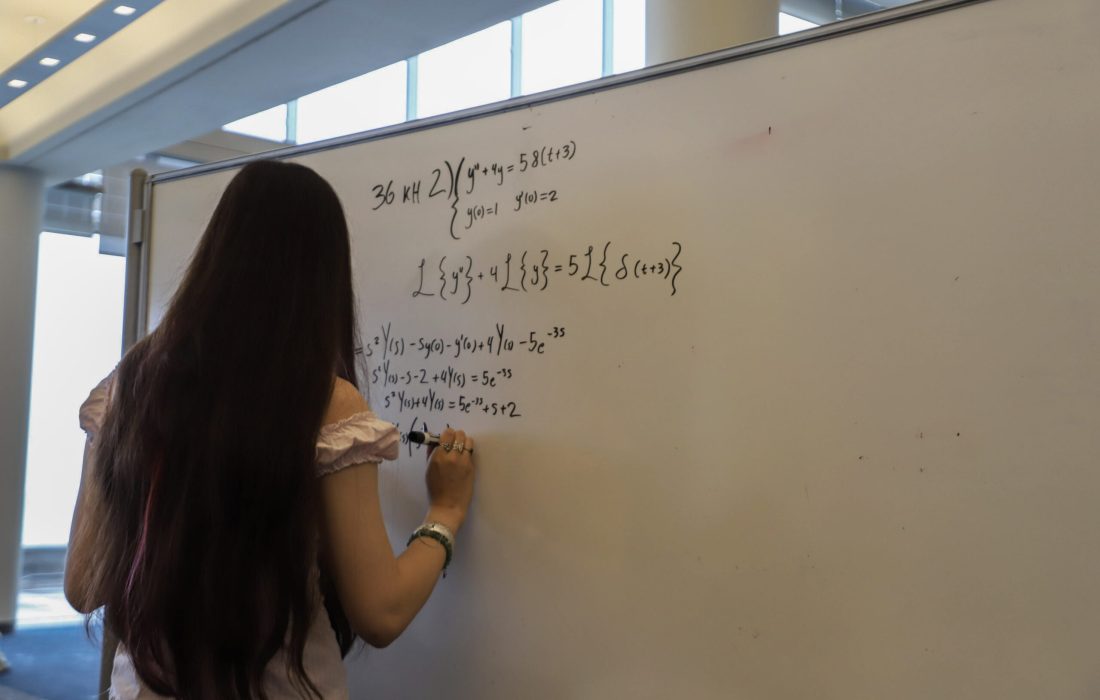 36 кн 2) { y" + 4y = 5 δ(t+3)
y(0)=1 y'(0)=2
ℒ{y"} + 4ℒ{y} = 5ℒ{δ(t+3)}
= s² Y(s) - sy(0) - y'(0) + 4Y(s) - 5e^-3s
s² Y(s) - s - 2 + 4Y(s) = 5e^-3s
s² Y(s) + 4Y(s) = 5e^-3s + s + 2